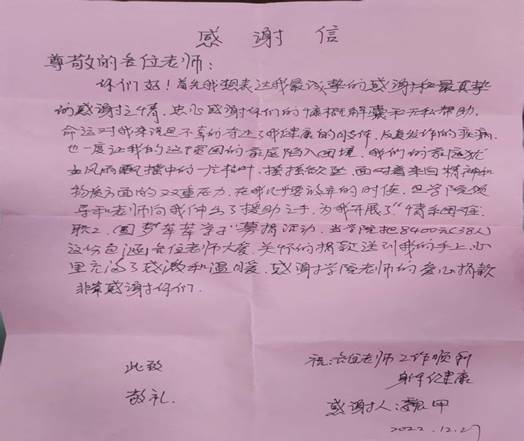 感谢信
尊敬的各位老师:
你们好!首先我想表达我最诚挚的感谢和最真挚
的感谢之情,衷心感谢你们的慷慨解囊和无私帮助。
命运对我来说是不幸的夺走了我健康的身体,反复发作的疾病
也一度让我的这个贫困的家庭陷入困境,我们的家庭犹
如风雨飘摇中的一片枯叶,摇摇欲坠,面对着来自精神和
物质方面的双重压力,在我几乎要放弃的时候,是学院领
导和老师向我伸出了援助之手,为我开展了“情系困难
职工,圆梦莘莘学子”募捐活动,当学院把8400元(38人)
这份包涵各位老师大爱,关怀的捐款送到我的手上,心
里充满了感激和温暖,感谢学院老师的爱心捐款
非常感谢你们.
此致
敬礼.
祝:各位老师工作顺利
身体健康
感谢人:魏甲
2022.12.27